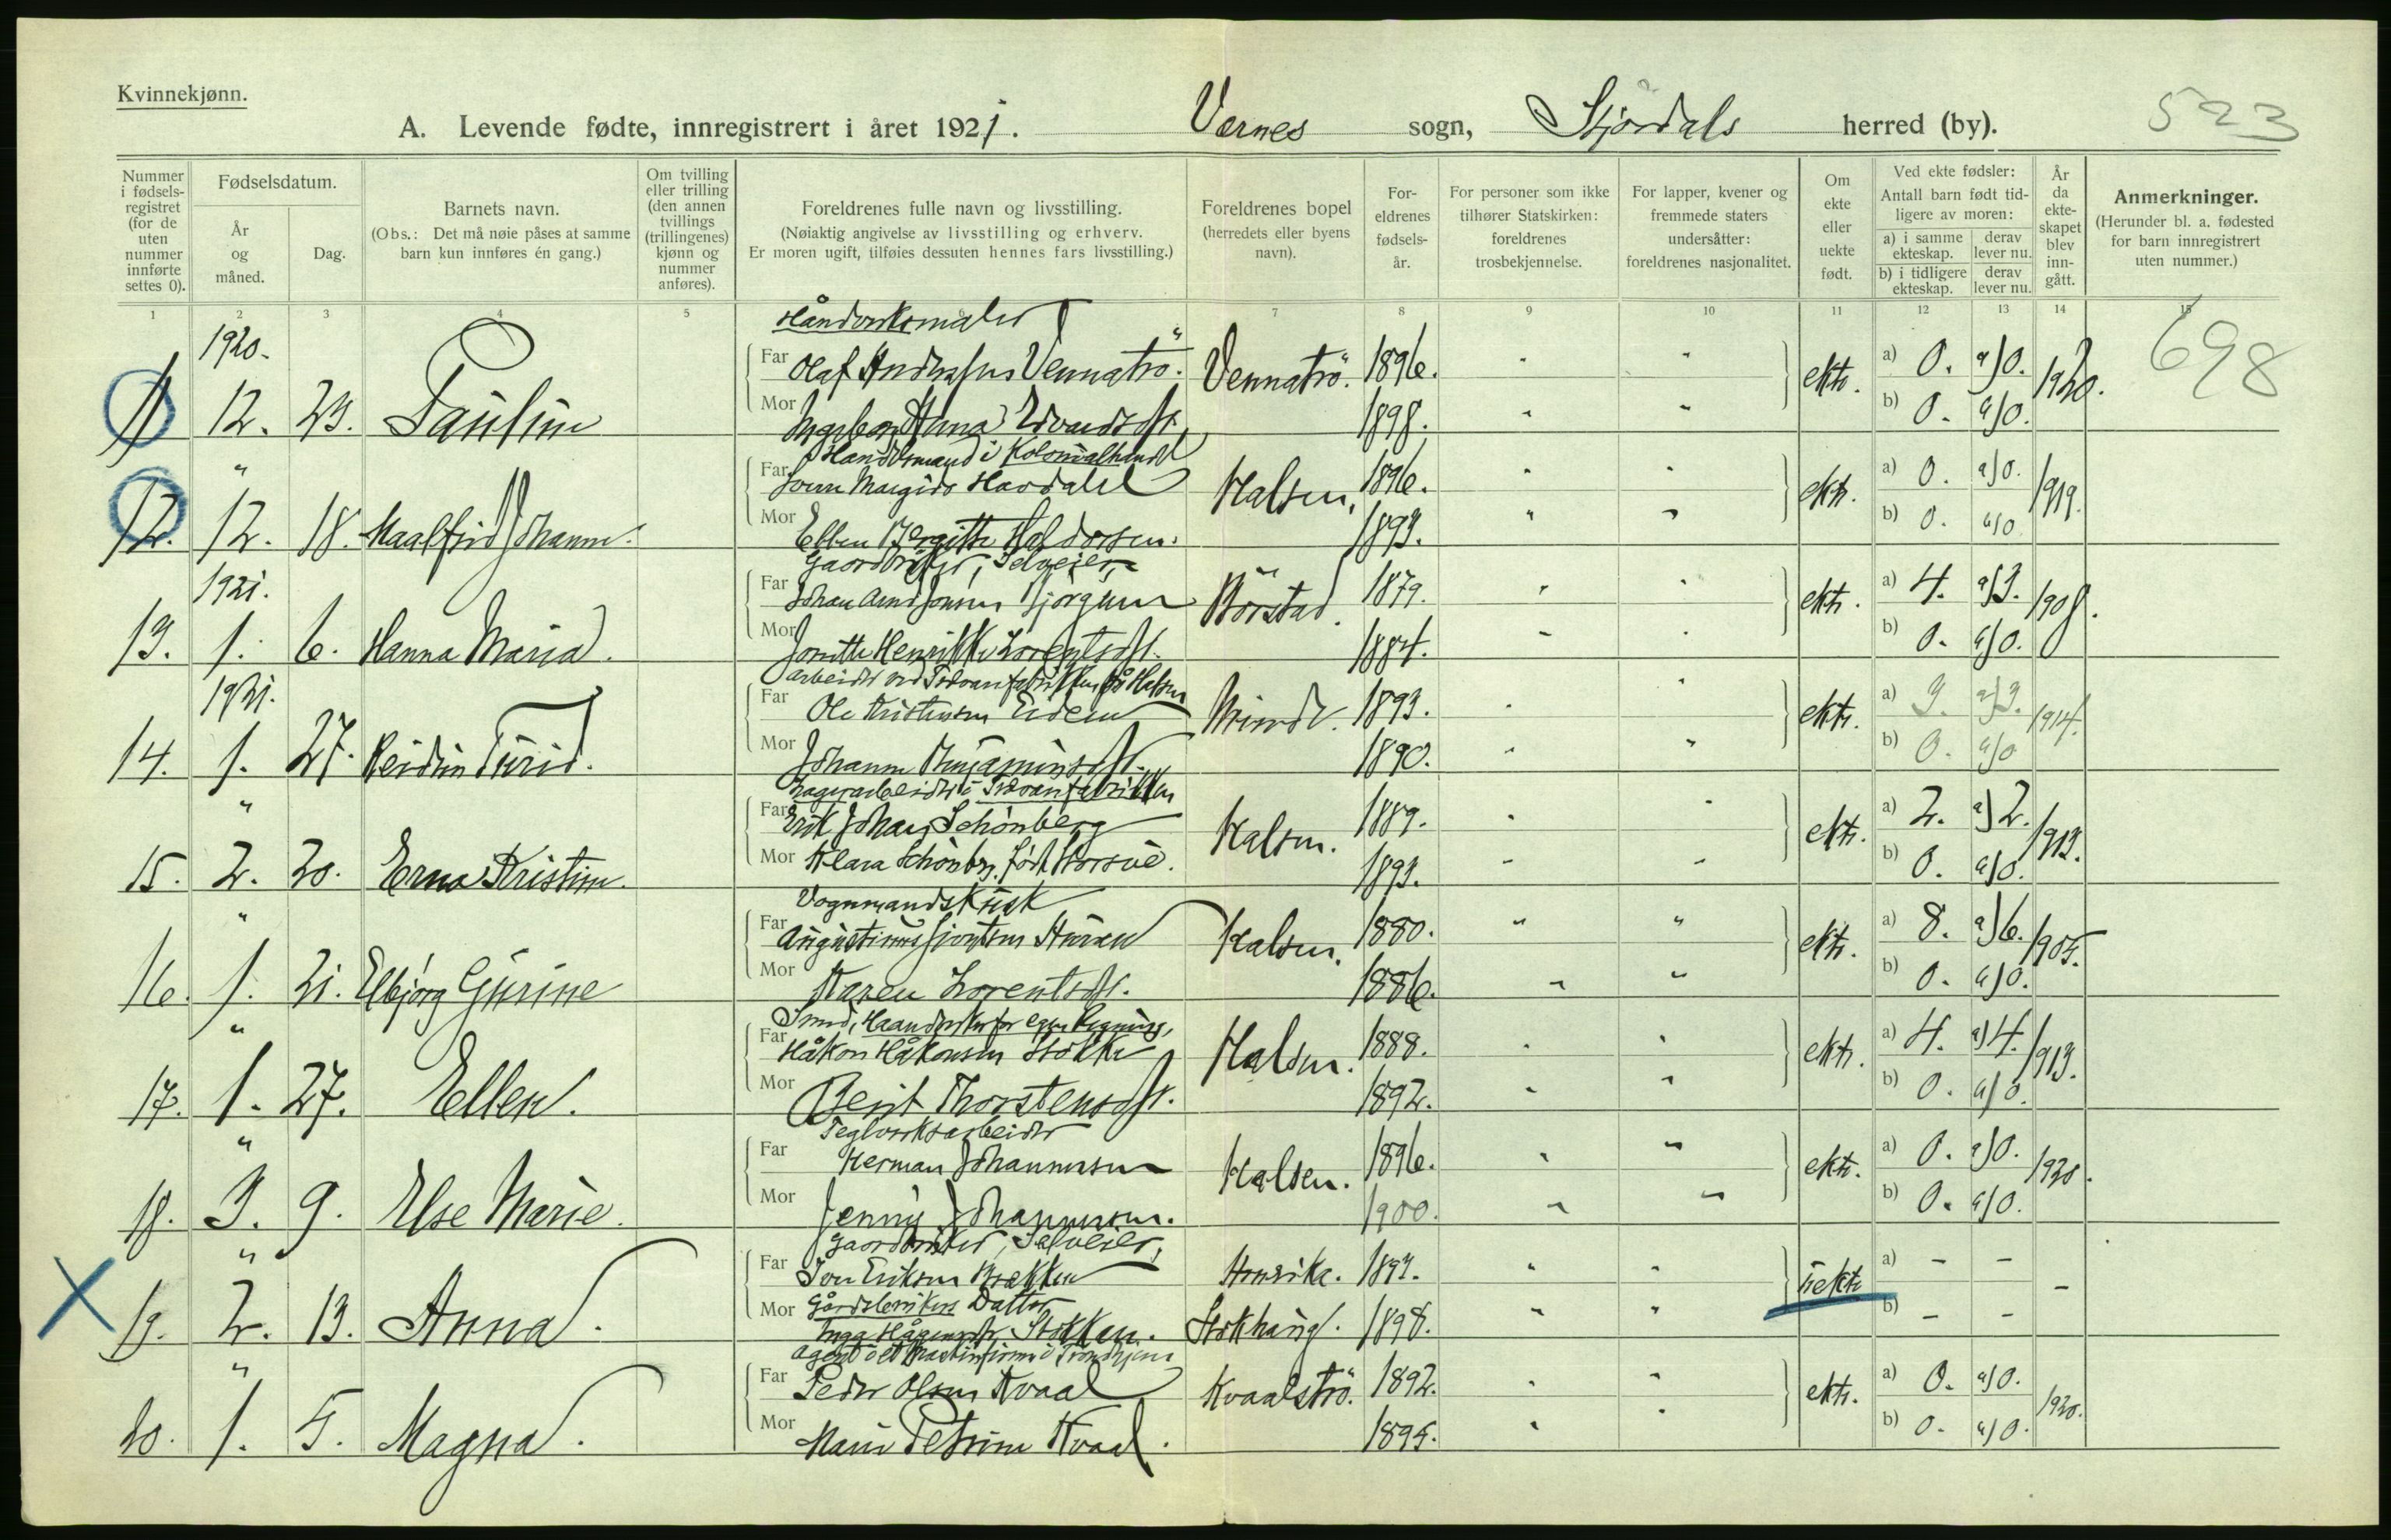 Kvinnekjønn.
A. Levende fødte, innregistrert i året 1921. Værnes sogn, Stjørdals herred (by). 523
Nummer i fødsels-registret (for de uten nummer innførte settes 0).
Fødselsdatum.
År og måned.
Dag.
Barnets navn.
(Obs.: Det må nøie påses at samme barn kun innføres én gang.)
Om tvilling eller trilling (den annen tvillings (trillingenes) kjønn og nummer anføres).
Foreldrenes fulle navn og livsstilling.
(Nøiaktig angivelse av livsstilling og erhverv.
Er moren ugift, tilføies dessuten hennes fars livsstilling.)
Foreldrenes bopel (herredets eller byens navn).
For-eldrenes fødsels-år.
For personer som ikke tilhører Statskirken: foreldrenes trosbekjennelse.
For lapper, kvener og fremmede staters undersåtter: foreldrenes nasjonalitet.
Om ekte eller uekte født.
Ved ekte fødsler:
Antall barn født tid-ligere av moren:
a) i samme ekteskap. derav lever nu.
b) i tidligere ekteskap. derav lever nu.
År da ekte-skapet blev inn-gått.
Anmerkninger.
(Herunder bl. a. fødested for barn innregistrert uten nummer.)
1 2 3 4 5 7 8 9 10 11 12 13 14 15
Håndverksmaler
1920. Far Olaf Vennatrö. Vennatrö. 1896. " " ekte. a) 0. a) 0. 1920. 698
11 12. 23. Pauline Mor Ingeborg Anna 1898. " " b) 0. a) 0.
Handelsmand i Kolonialhandel
" Far Halsen. 1896. " " ekte. a) 0. a) 0. 1919.
12. 12. 18. Maalfrid Johanne. Mor Ellen Bergitte Haldorsen. 1893. " " b) 0. a) 0
Gaardbruker, Selveier,
1921. Far Johan 1879. " " ekte. a) 4. a) 3. 1908.
13. 1. 6. Hanna Maria. Mor Lorentsdt. 1884. " " b) 0. a) 0.
1921. Far Ole Kristensen 1893. " " ekte. a) 3. a) 3. 1914.
14. 1. 27. Reidun Turid. Mor Johanne Benjaminsdt. 1890. " " b) 0. a) 0
Lagerarbeider i
" Far Erik Johan Schönberg Halsen. 1889. " " ekte. a) 2. a) 2. 1913.
15. 2. 20. Erna Kristine. Mor Klara Schönberg, født 1893. " " b) 0. a) 0.
Vognmandskusk
" Far Augustinus Halsen. 1880. " " ekte. a) 8. a) 6. 1905.
16. 1. 21. Elbjörg Gurine Mor Karen Lorentsdt. 1886. " " b) 0. a) 0.
Smed, Haandverker for egen Regning,
" Far Håkon Håkonsen Halsen. 1888. " " ekte. a) 4. a) 4. 1913.
17. 1. 27. Ellen. Mor Berit Thorstensdt. 1892. " " b) 0. a) 0.
Teglverksarbeider
" Far Herman Johannessen Halsen. 1896. " " ekte. a) 0. a) 0. 1920.
18. 3. 9. Else Marie. Mor Jenny Johannessen. 1900. " " b) 0. a) 0.
Gaardbruker, Selveier,
" Far Amerika. 1893. " " uekte a) – – –
Gårdbrukers Datter
19. 2. 13. Anna. Mor Inga Stokkan. Stokhaug. 1898. " " b) – –
" Far Peder Olsen Kvaal Kvaalströ. 1892. " " ekte. a) 0. a) 0. 1920.
20. 1. 5. Magna. Mor Petrine Kvaal. 1895. " " b) 0. a) 0.